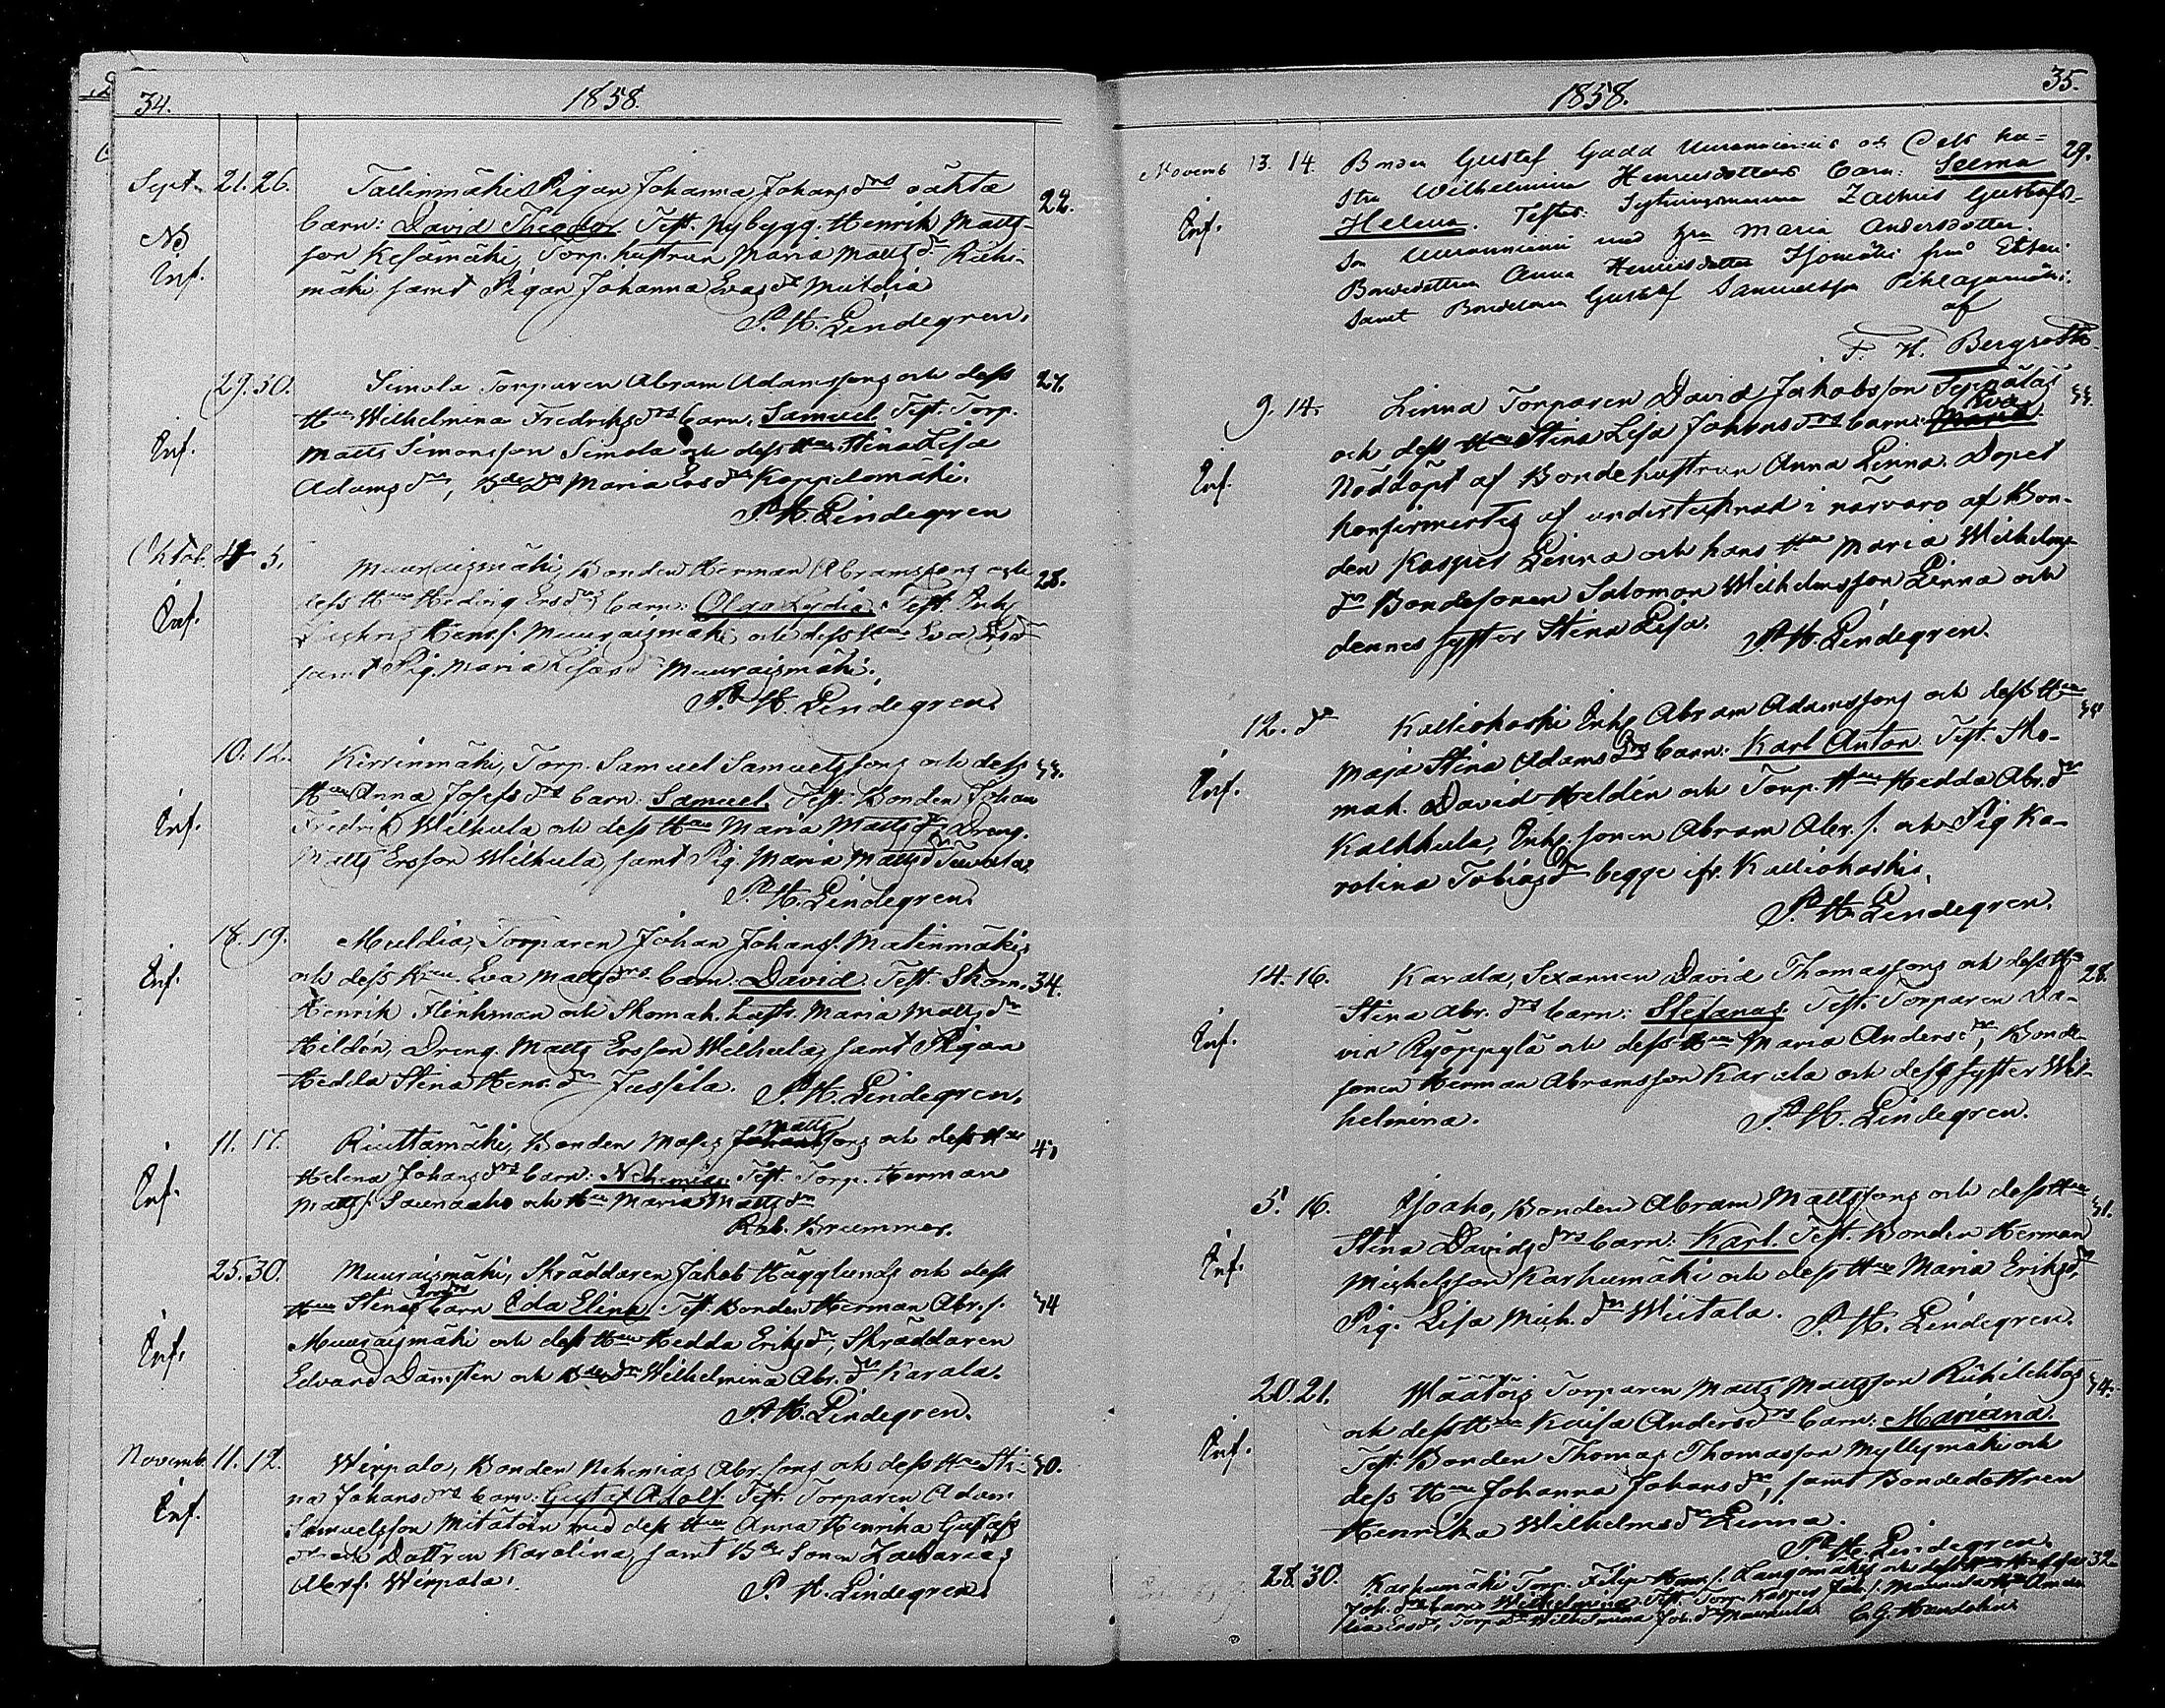 34. 1858.
Sept. 21. 26. Tallinmäki Pigan Johanna Johansdrs oäkta 22.
barn: David Theodor. Test. Nybygg. Henrik Matts-
son Kesämäki, Torp. hustrun Maria Mattsdr Riihi-
Inf. mäki samt Pigan Johanna Evasdr Multia
P. H. Lindegren.
29. 30. Simola Torparen Abram Adamssons och dess 27.
Hu Wilhelmina Fredriksdrs barn: Samuel Test. Torp.
Inf. Matts Simonsson Simola och dess Hu Stina Lisa
Adamsdr, Maria Ersdr Koppelomäki.
P. H. Lindegren
Oktob. 5. Muuraismäki, Bonden Herman Abramssons och 28.
Inf. dess Hu Hedvig Ersdrs barn: Olga Lydia. Test. Inh.
Henr.s. Muuraismäki och dess Hu Eva
samt Pig. Maria Muuraismäki.
P. H. Lindegren.
10. 12. Kirrinmäki, Torp. Samuel Samuelssons och dess 33.
Hu Anna Josefsdrs barn: Samuel. Test. Bonden Johan
Inf. Fredrik Wilhula och dess Hu Maria Mattsdr, Dreng.
Matts Ersson Wilhula, samt Pig. Maria Mattsdr
P. H. Lindegren.
18. 19. Multia, Torparen Johan Johanss. Matinmäkis
Inf. och dess Hu Eva Mattsdrs barn: David. Test. Skom. 34.
Henrik Flinkman och Skomak. hustr. Maria Mattsdr
Hildén, Dreng. Matts Ersson Wilhula, samt Pigan
Hedda Stina Henr.dr Jussila. P. H. Lindegren.
11. 17. Riuttamäki, Bonden Moses Johanssons Matts och dess Hu 41
Inf. Helena Johansdrs barn: Nehemias Test. Torp. Herman
Matts.s. Saunaaho och Hu Maria Mattsdr
Rob. Brummer.
25. 30. Muuraismäki, Skräddaren Jakob Hägglunds och dess
Hu Stinas barn Ida Elina. Test. Bonden Herman Abr.s. 34
Inf. Muuraismäki och dess Hu Hedda Eriksdr, Skräddaren
Edvard Damstén och Wilhelmina Abr.dr Karala.
P. H. Lindegren.
Novemb. 11. 12. Wirpalo, Bonden Nehemias Abr.sons och dess Hu Sti- 30.
Inf. na Johansdrs barn: Gustaf Adolf Test. Torparen Adam
Samuelsson med dess Hu Anna Henrika Gustafs
dr och Dottren Karolina, samt Sonen Zacharias
Abr.s. Wirpala. P. H. Lindegren.
35. 1858.
Novemb. 13. 14. Bonden Gustaf Gadd och Dess hu- 29.
stru Wilhelmina Henricsdotters barn: Selma
Inf. Helena. Testes: Zachris Gustafs-
son med hu Maria Andersdotter.
Bondedottren Anna Henricsdotter Isomäki från Etseri
samt Bondesonen Gustaf Samuelsson Pihlajamäki
af
F. H. Bergroth.
9. 14. Linna Torparen David Jakobsson 33.
och dess Hu Stina Lisa Johansdrs barn: Maria Eva
Inf. Nöddöpt af Bondehustrun Anna Linna. Dopet
konfirmertes af undertecknad i närvaro af Bon-
den Kasper Linna och hans Hu Maria Wilhelms
dr Bondesonen Salomon Wilhelmsson Linna och
dennes syster Stina Lisa. P. H. Lindegren.
12. do Kalliokoski Inh. Abram Adamssons och dess Hu
Maja Stina Adamsdrs barn: Karl Anton. Test. Sko-
Inf. mak. David Heldén och Torp. Hu Hedda Abr.dr
Kalkkula, Inh. sonen Abram Abr.s. och Pig Ka-
rolina Tobiasdr begge ifr. Kalliokoski.
P. H. Lindegren.
14. 16. Karala, Sexannen David Thomassons och dess Hu 28.
Stina Abr.drs barn: Stefanas. Test. Torparen Da-
Inf. vid Ryöppylä och dess Hu Maria Andersdr, Bonde-
sonen Herman Abramsson Karala och dess syster Wil-
helmina. P. H. Lindegren.
5. 16. Isoaho, Bonden Abram Mattssons och dess Hu 31.
Stina Davidsdrs barn: Karl. Test. Bonden Herman
Inf. Michelsson Karhumäki och dess Hu Maria Eriksdr,
Pig. Lisa Mich.dr Wiitala. P. H. Lindegren.
20. 21. Wäätöis Torparen Matts Mattsson 34.
och dess Hu Kaisa Andersdrs barn: Mariana.
Inf. Test. Bonden Thomas Thomasson Myllymäki och
dess Hu Johanna Johansdr, samt Bondedottren
Henrika Wilhelmsdr Linna.
P. H. Lindegren.
28. 30. Karhumäki Torp. Filip Henr.s. Langomäkis och dess 32
Joh.drs barn: Wilhelmina. Test. Torp. Kasper Hu Ama-
lia Ersdr, Torp.dr Wilhelmina Joh.dr